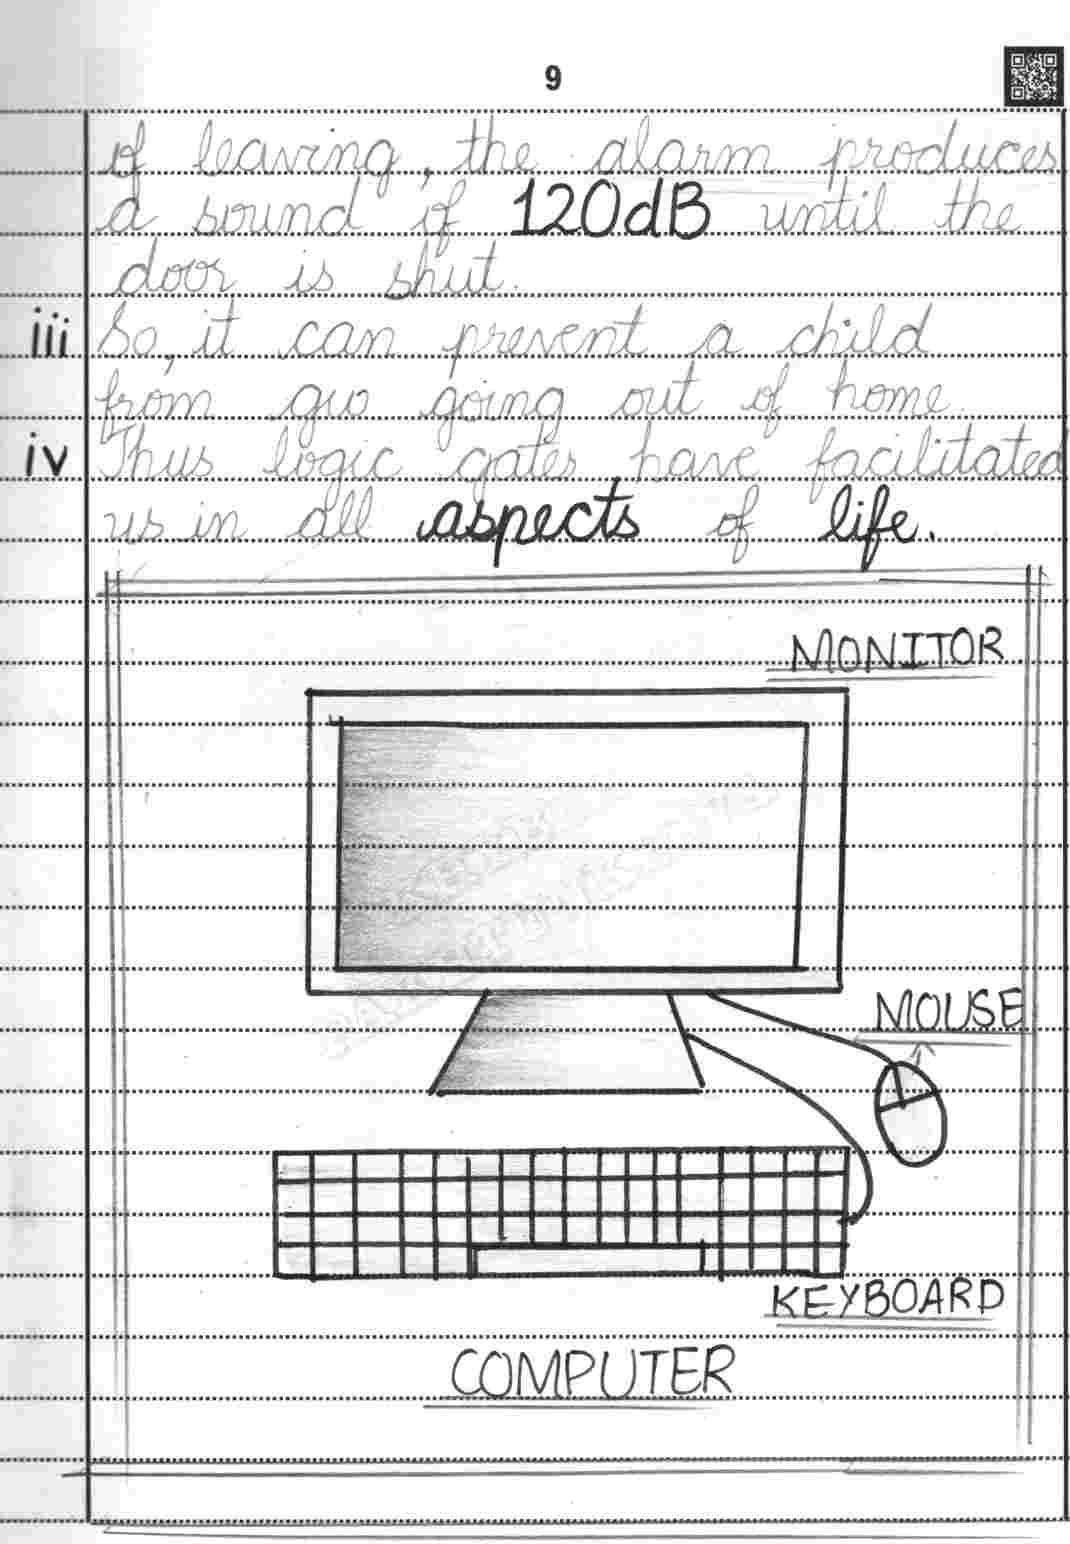 9
of leaving, the alarm produces
a sound of 120dB until the
door is shut.
iii So, it can prevent a child
from go going out of home.
iv Thus logic gates have facilitated
us in all aspects of life.
MONITOR
MOUSE
KEYBOARD
COMPUTER